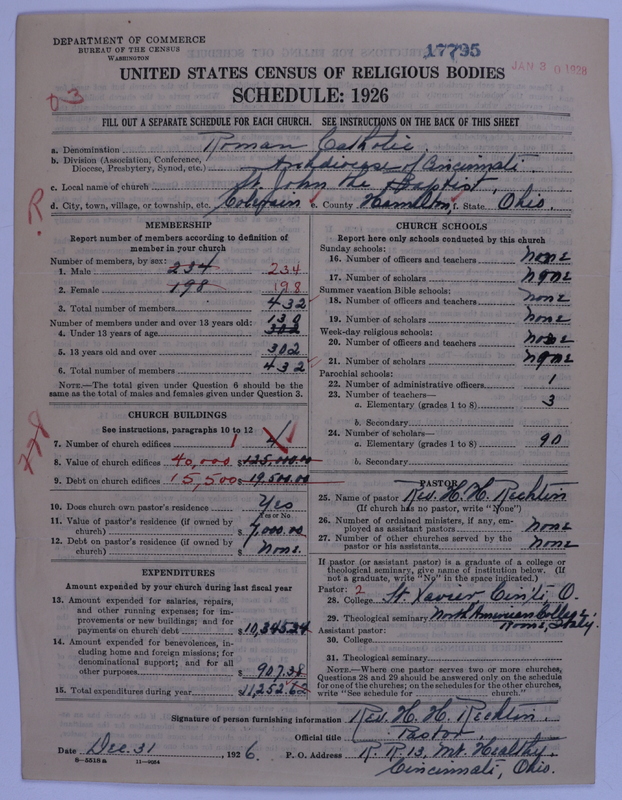 DEPARTMENT OF COMMERCE
BUREAU OF THE CENSUS
WASHINGTON
17795
JAN 30 1928
UNITED STATES CENSUS OF RELIGIOUS BODIES
SCHEDULE: 1926
FILL OUT A SEPARATE SCHEDULE FOR EACH CHURCH. SEE INSTRUCTIONS ON THE BACK OF THIS SHEET
a. Denomination Roman Catholic
b. Division (Association, Conference, Diocese, Presbytery, Synod, etc.) Archdiocese of Cincinnati
c. Local name of church St. John the Baptist
d. City, town, village, or township, etc. Colerain e. County Hamilton f. State Ohio
R
MEMBERSHIP
Report number of members according to definition of
member in your church
Number of members by sex:
1. Male 234 234
2. Female 198 198
3. Total number of members 432
Number of members under and over 13 years old: 130
4. Under 13 years of age 302
5. 13 years old and over 302
6. Total number of members 432
NOTE.—The total given under Question 6 should be the
same as the total of males and females given under Question 3.
778
CHURCH BUILDINGS
See instructions, paragraphs 10 to 12
7. Number of church edifices 1 4
8. Value of church edifices 40,000 $125,000.00
9. Debt on church edifices 15,500 $19,500.00
10. Does church own pastor's residence? Yes
Yes or No
11. Value of pastor's residence (if owned by
church) $ 7,000.00
12. Debt on pastor's residence (if owned by
church) $ None.
EXPENDITURES
Amount expended by your church during last fiscal year
13. Amount expended for salaries, repairs,
and other running expenses; for im-
provements or new buildings; and for
payments on church debt $10,345.24
14. Amount expended for benevolences, in-
cluding home and foreign missions; for
denominational support; and for all
other purposes $ 907.38
15. Total expenditures during year $11,252.62
CHURCH SCHOOLS
Report here only schools conducted by this church
Sunday schools:
16. Number of officers and teachers None
17. Number of scholars None
Summer vacation Bible schools:
18. Number of officers and teachers None
19. Number of scholars None
Week-day religious schools:
20. Number of officers and teachers None
21. Number of scholars None
Parochial schools:
22. Number of administrative officers 1
23. Number of teachers—
a. Elementary (grades 1 to 8) 3
b. Secondary
24. Number of scholars—
a. Elementary (grades 1 to 8) 90
b. Secondary
PASTOR
25. Name of pastor Rev. H. H. Recktin
(If church has no pastor, write "None")
26. Number of ordained ministers, if any, em-
ployed as assistant pastors None
27. Number of other churches served by the
pastor or his assistants None
If pastor (or assistant pastor) is a graduate of a college or
theological seminary, give name of institution below. (If
not a graduate, write "No" in the space indicated.)
Pastor: 2
28. College St. Xavier Cinti O.
29. Theological seminary North American College
Rome, Italy.
Assistant pastor:
30. College
31. Theological seminary
NOTE.—Where one pastor serves two or more churches,
Questions 28 and 29 should be answered only on the schedule
for one of the churches; on the schedules for the other churches,
write "See schedule for church."
Signature of person furnishing information Rev. H. H. Recktin
Official title Pastor
Date Dec. 31, 1926. P. O. Address R. R. 13, Mt. Healthy,
8—5518a 11—9054 Cincinnati, Ohio.